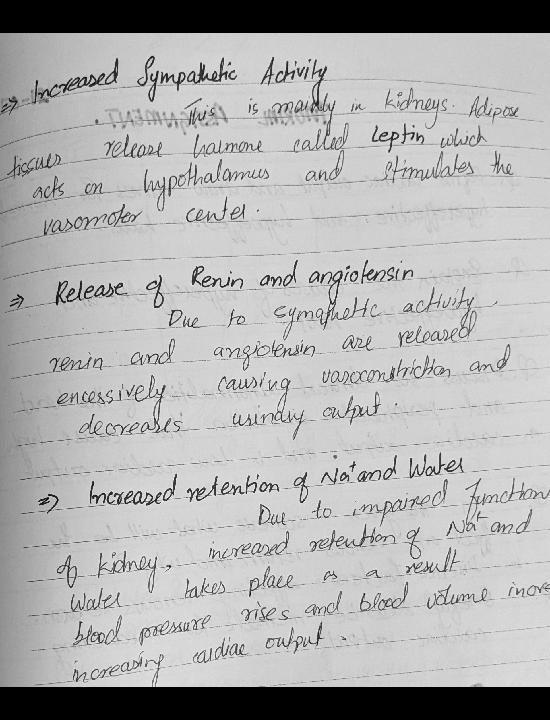 ⇒ Increased Sympathetic Activity
This is mainly in kidneys. Adipose
tissues release halmone called leptin which
acts on hypothalamus and stimulates the
vasomotor center.
⇒ Release of Renin and angiotensin
Due to symathetic activity,
renin and angiotensin are released
encessively causing vasoconstriction and
decreases urinary output.
⇒ Increased retention of Na⁺ and Water
Due to impaired function
of kidney, increased retention of Na⁺ and
Water takes place as a result
blood pressure rises and blood volume incre
increasing cardiac output.